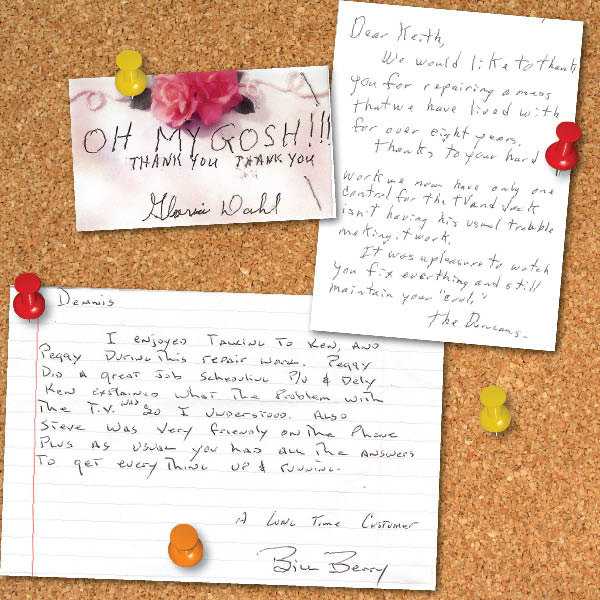 OH MY GOSH!!!
THANK YOU THANK YOU
Gloria Dahl
Dear Keith,
We would like to thank
you for repairing a mess
that we have lived with
for over eight years.
Thanks to your hard
work we now have only one
control for the TV and Jack
isn't having his usual trouble
making it work.
It was a pleasure to watch
you fix everthing and still
maintain your "cool."
The Duncans.
Dennis
I enjoyed Talking To Ken, AND
Peggy During This repair work. Peggy
Did a great Job Scheduling P/U & Dely
Ken explained what The Problem with
The T.V. was so I understood. Also
Steve was very friendly on The Phone
Plus as usual you had all The answers
To get everything up & running.
A Long Time Customer
Bill Berry